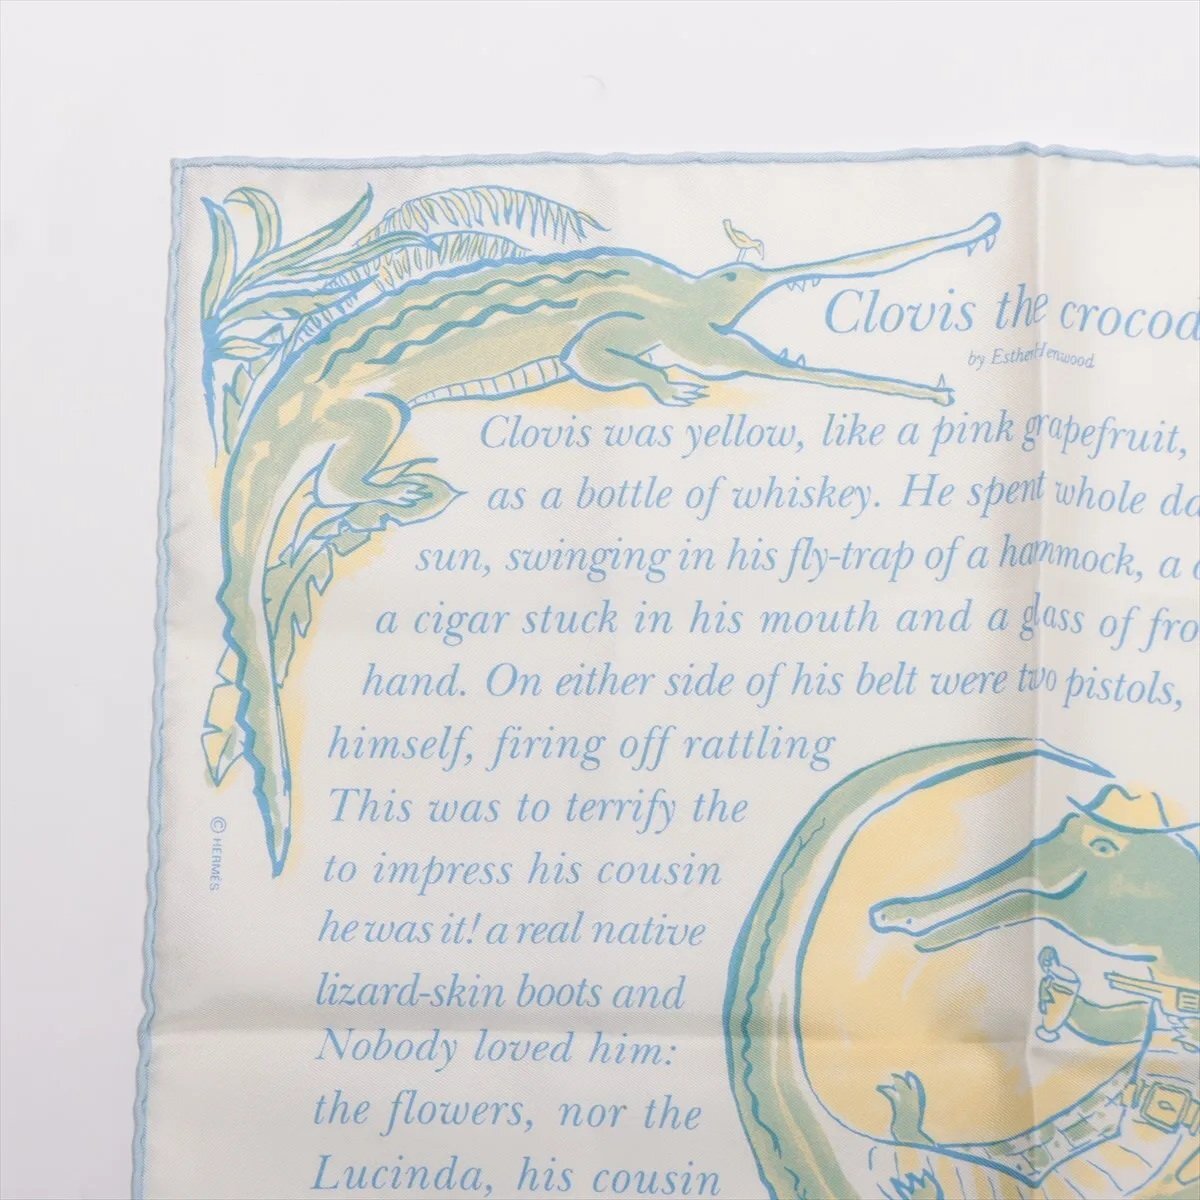 Clovis the crocod
by Esther Henwood
Clovis was yellow, like a pink grapefruit,
as a bottle of whiskey. He spent whole da
sun, swinging in his fly-trap of a hammock, a c
a cigar stuck in his mouth and a glass of fro
hand. On either side of his belt were two pistols,
himself, firing off rattling
This was to terrify the
to impress his cousin
he was it! a real native
lizard-skin boots and
Nobody loved him:
the flowers, nor the
Lucinda, his cousin
© HERMÈS